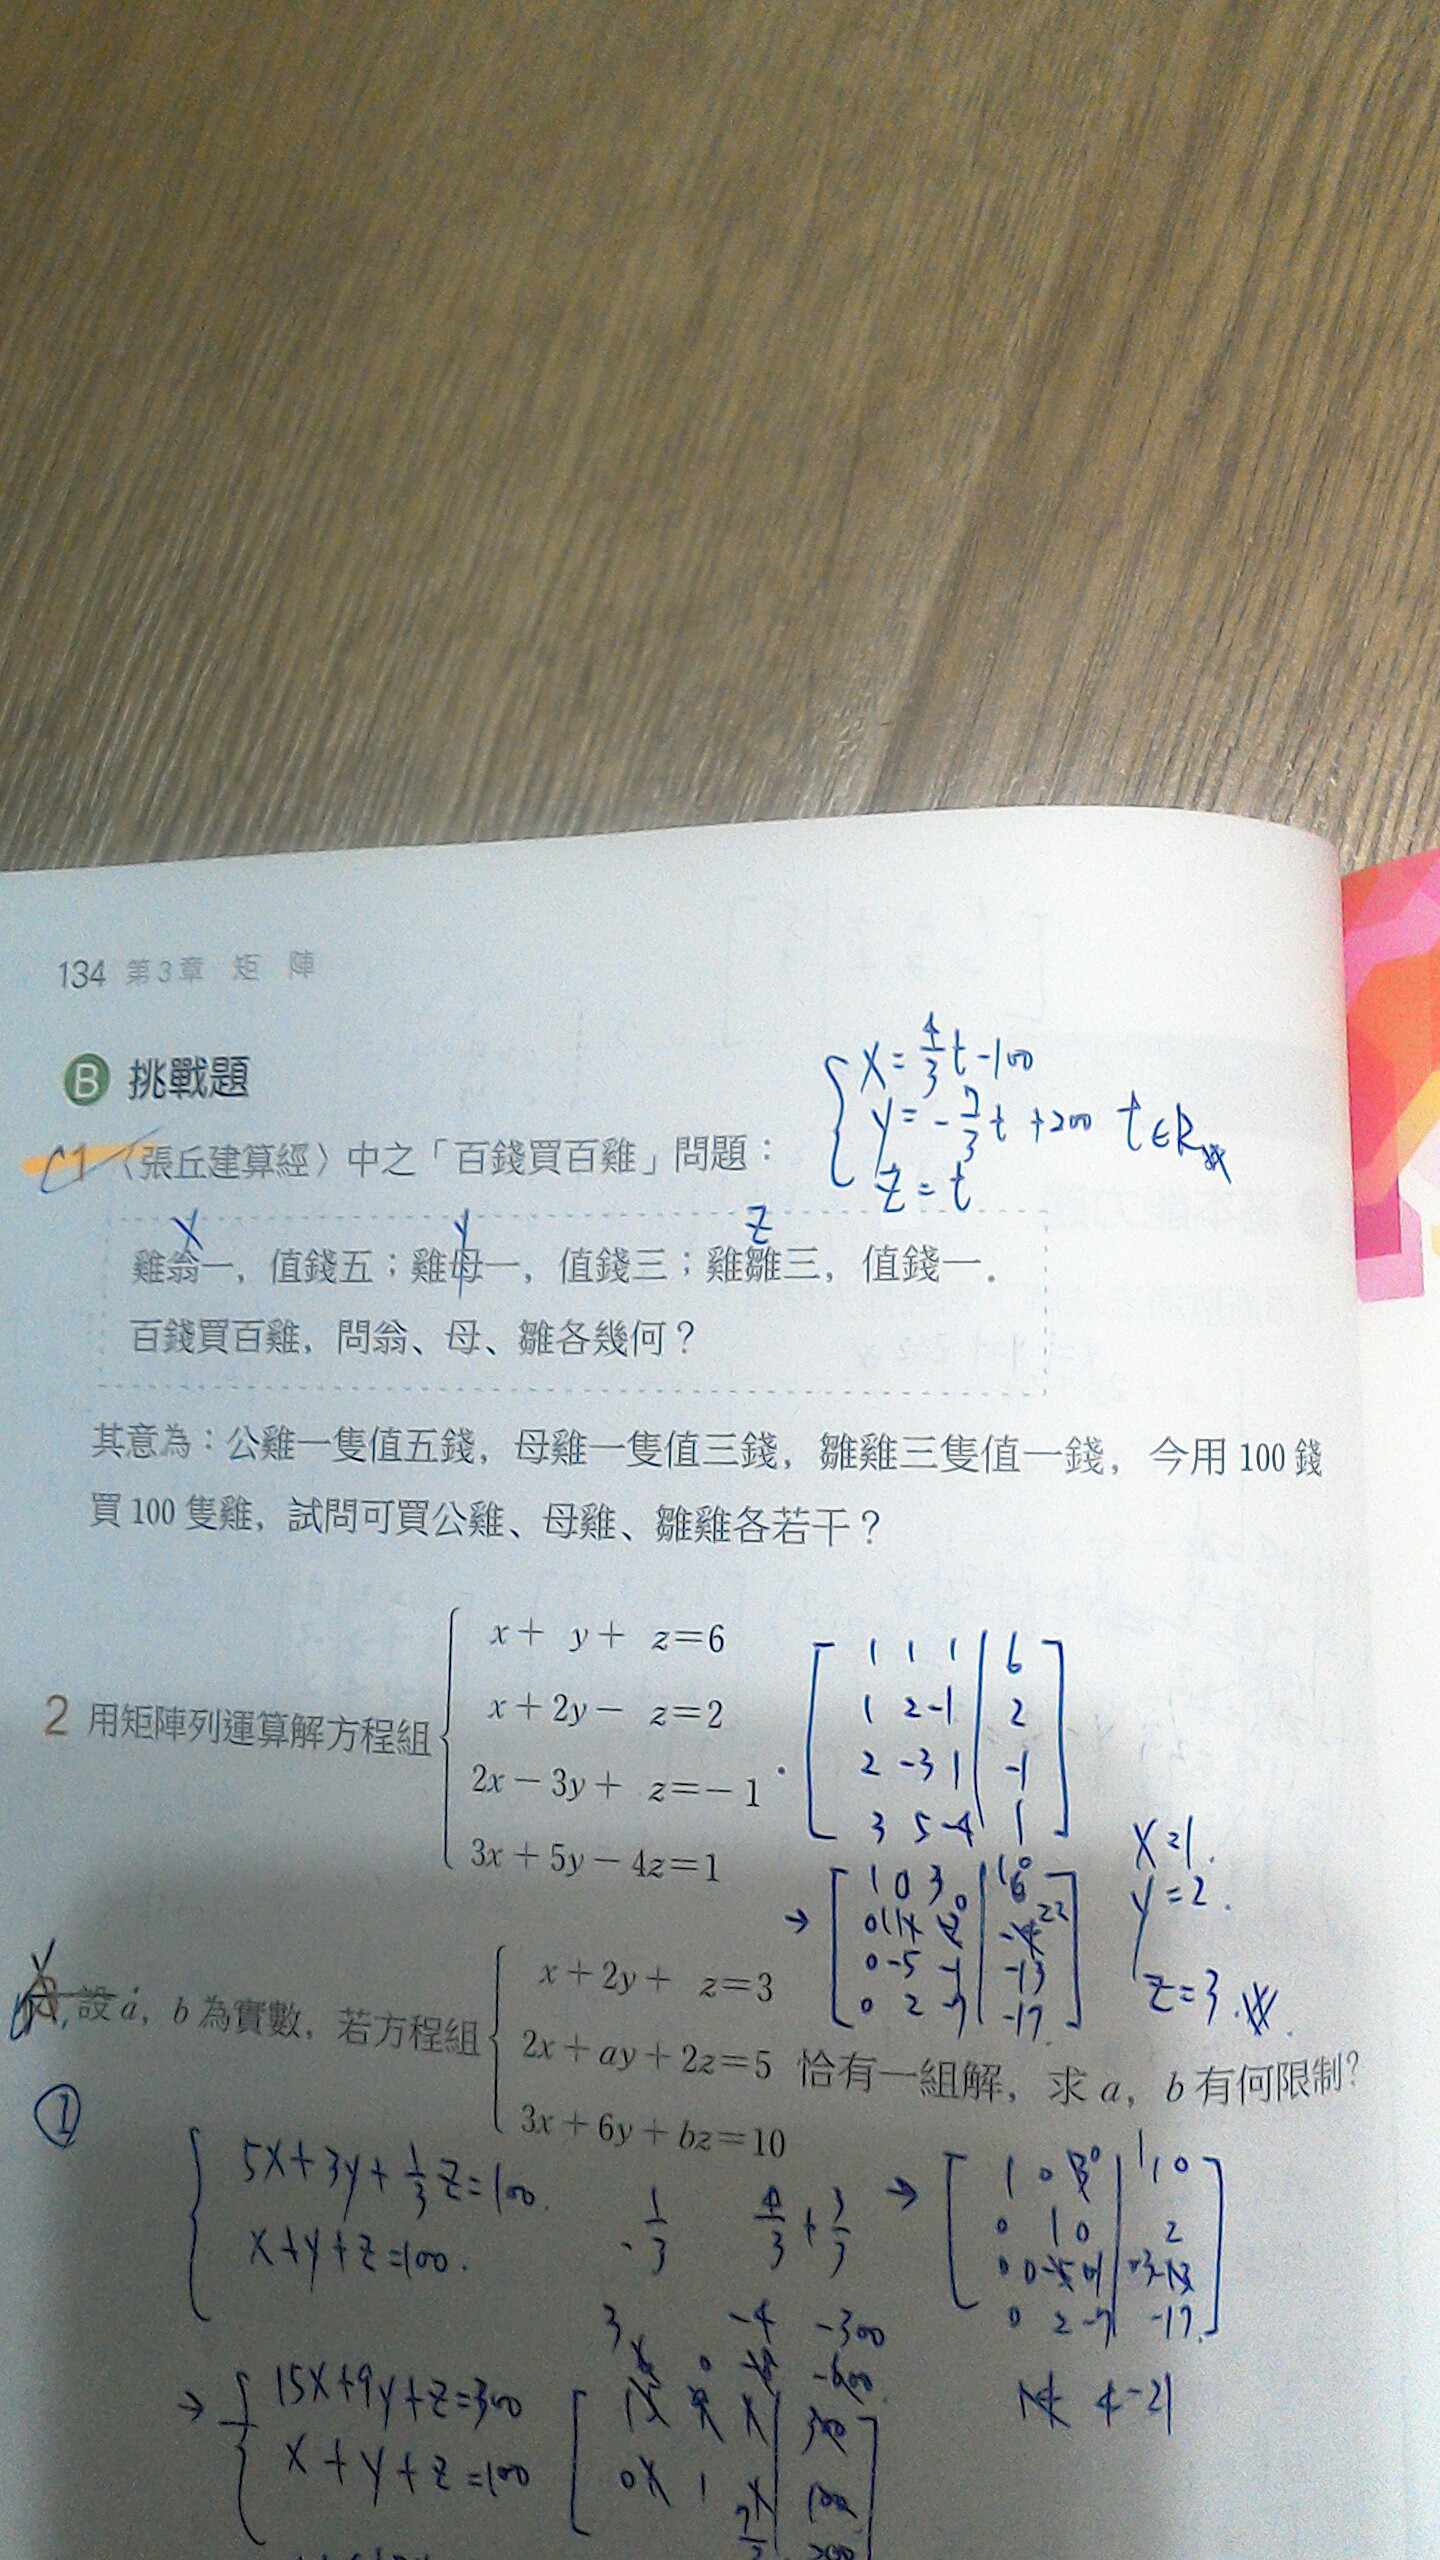 134 第3章 矩 陣
B 挑戰題
x = 4/3 t - 100
y = - 7/3 t + 200 t ∈ R
z = t
1 〈張丘建算經〉中之「百錢買百雞」問題：
x y z
雞翁一，值錢五；雞母一，值錢三；雞雛三，值錢一．
百錢買百雞，問翁、母、雛各幾何？
其意為：公雞一隻值五錢，母雞一隻值三錢，雛雞三隻值一錢，今用 100 錢
買 100 隻雞，試問可買公雞、母雞、雛雞各若干？
2 用矩陣列運算解方程組
x + y + z = 6
x + 2y − z = 2
2x − 3y + z = − 1 .
3x + 5y − 4z = 1
1 1 1 | 6
1 2 -1 | 2
2 -3 1 | -1
3 5 -4 | 1
x = 1.
y = 2.
z = 3.
設 a，b 為實數，若方程組
x + 2y + z = 3
2x + ay + 2z = 5
3x + 6y + bz = 10
恰有一組解，求 a，b 有何限制？
①
5x + 3y + 1/3 z = 100.
x + y + z = 100.
- 1/3 4/3 + 3/3
3 -4 -300
→ 15x + 9y + z = 300
x + y + z = 100
4 -21